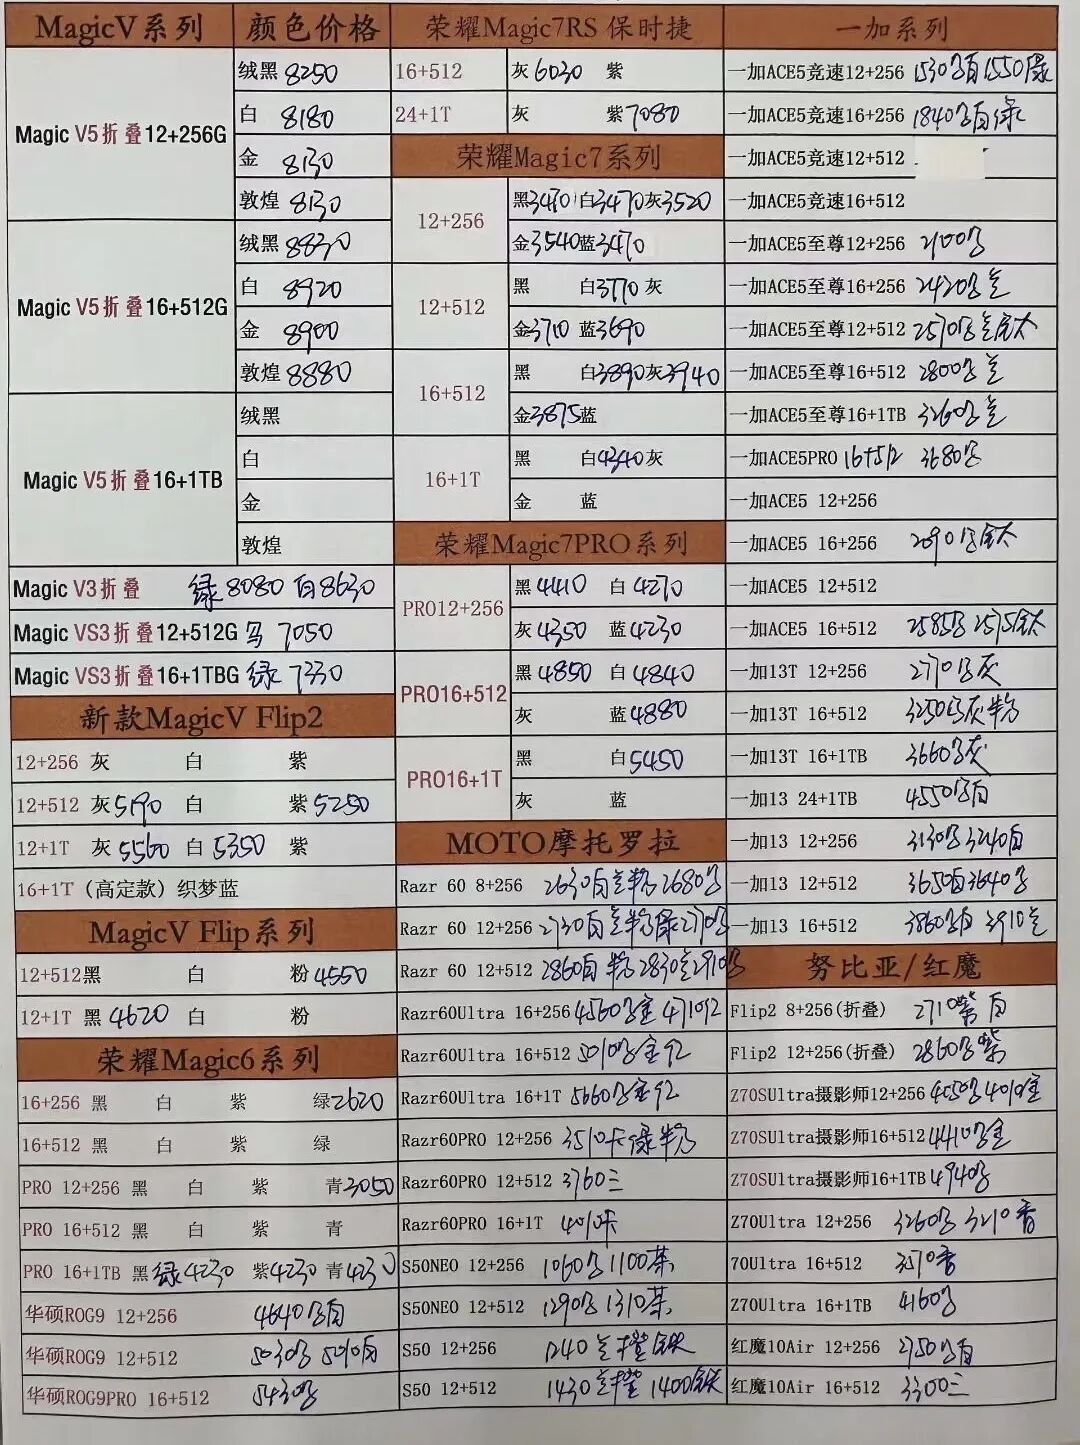 MagicV系列 颜色价格
Magic V5折叠12+256G
绒黑 8250
白 8180
金 8130
敦煌 8130
Magic V5折叠16+512G
绒黑 8830
白 8920
金 8900
敦煌 8880
Magic V5折叠16+1TB
绒黑
白
金
敦煌
Magic V3折叠 绿8080 白8630
Magic VS3折叠12+512G 3 7050
Magic VS3折叠16+1TBG 绿 7330
新款MagicV Flip2
12+256 灰 白 紫
12+512 灰5190 白 紫5250
12+1T 灰5560 白5350 紫
16+1T（高定款）织梦蓝
MagicV Flip系列
12+512黑 白 粉4550
12+1T 黑4620 白 粉
荣耀Magic6系列
16+256 黑 白 紫 绿2620
16+512 黑 白 紫 绿
PRO 12+256 黑 白 紫 青3050
PRO 16+512 黑 白 紫 青
PRO 16+1TB 黑绿4230 紫4230 青4230
华硕ROG9 12+256 4640 白
华硕ROG9 12+512 5030 5090白
华硕ROG9PRO 16+512 5430
荣耀Magic7RS 保时捷
16+512 灰6030 紫
24+1T 灰 紫7080
荣耀Magic7系列
12+256
黑3470 白3470灰3520
金3540蓝3470
12+512
黑 白3770 灰
金3710 蓝3690
16+512
黑 白3890灰3940
金3875蓝
16+1T
黑 白4340灰
金 蓝
荣耀Magic7PRO系列
PRO12+256
黑4410 白4270
灰4350 蓝4230
PRO16+512
黑4850 白4840
灰 蓝4880
PRO16+1T
黑 白5450
灰 蓝
MOTO摩托罗拉
Razr 60 8+256 2630白兰粉2680
Razr 60 12+256 2730白兰粉绿2770
Razr 60 12+512 2860白粉2830兰2910
Razr60Ultra 16+256 4560 金 4710红
Razr60Ultra 16+512 5010 金红
Razr60Ultra 16+1T 5660 金红
Razr60PRO 12+256 3510卡绿粉
Razr60PRO 12+512 3760三
Razr60PRO 16+1T 4010卡
S50NEO 12+256 1060 1100茶
S50NEO 12+512 1290 1310茶
S50 12+256 1240兰橙钛
S50 12+512 1430兰橙 1400钛
一加系列
一加ACE5竞速12+256 1530 白1550绿
一加ACE5竞速16+256 1840 白绿
一加ACE5竞速12+512
一加ACE5竞速16+512
一加ACE5至尊12+256 2100
一加ACE5至尊16+256 2420 兰
一加ACE5至尊12+512 2570 兰钛
一加ACE5至尊16+512 2800 兰
一加ACE5至尊16+1TB 3260 兰
一加ACE5PRO 16+512 3680
一加ACE5 12+256
一加ACE5 16+256 2090 钛
一加ACE5 12+512
一加ACE5 16+512 2585 2575钛
一加13T 12+256 2770 灰
一加13T 16+512 3250 灰粉
一加13T 16+1TB 3660 灰
一加13 24+1TB 4550 白
一加13 12+256 3130 3240白
一加13 12+512 3650白3640
一加13 16+512 3860 白 3910兰
努比亚/红魔
Flip2 8+256(折叠) 2710紫白
Flip2 12+256(折叠) 2860 紫
Z70SUltra摄影师12+256 4050 4010金
Z70SUltra摄影师16+512 4410 金
Z70SUltra摄影师16+1TB 4940
Z70Ultra 12+256 3260 3210香
70Ultra 16+512 3570香
Z70Ultra 16+1TB 4160
红魔10Air 12+256 2750 白
红魔10Air 16+512 3300三